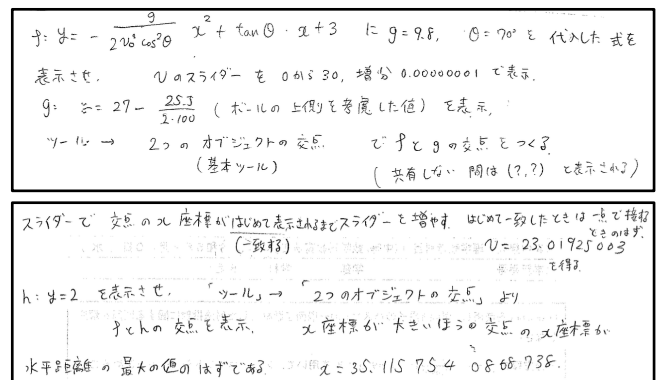 f: y = - g/(2v₀²cos²θ) x² + tanθ・x + 3 に g = 9.8, θ = 70° を 代入した 式を
表示させ, vのスライダー を 0から 30, 増分 0.00000001 で表示.
g: y = 27 - 25.5/(2・100) (ボールの 上側を考慮した値) を表示,
ツール → 2つの オブジェクトの 交点 で fとgの交点を つくる
(基本ツール) (共有しない 間は (?,?) と表示される)
スライダーで 交点の x 座標がはじめて表示されるまでスライダーを増やす. はじめて一致したときは 一点で接する
(一致する) ときのはず.
v = 23.01925003
を得る.
h: y=2 を表示させ. 「ツール」→ 「2つのオブジェクトの 交点」 より
fとhの 交点を 表示. x 座標が 大きいほうの 交点の x座標が
水平距離の 最大の値の はずである. x = 35.115754 0868738.